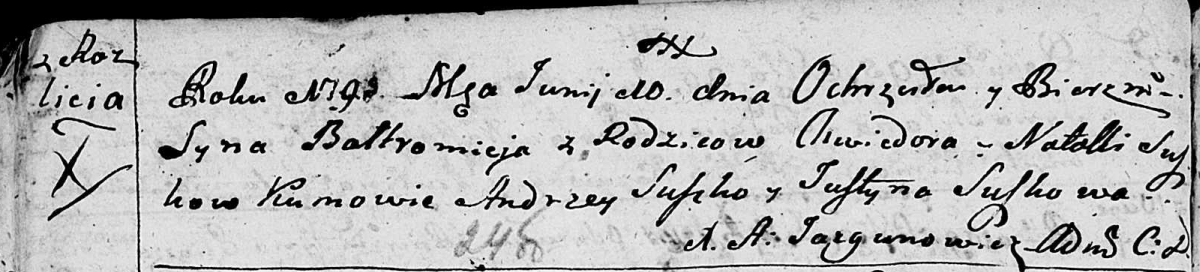 z Roz
licia
X
XX
Roku 1793. Mca Junij 10. dnia Ochrzciłem y Bierzm.
Syna Bałtromieja z Rodzicow Chwiedora y Natalli Susz
kow Kumowie Andrzey Suszko y Justyna Suszkowa
246
X. A: Jazgunowicz Adm C: L